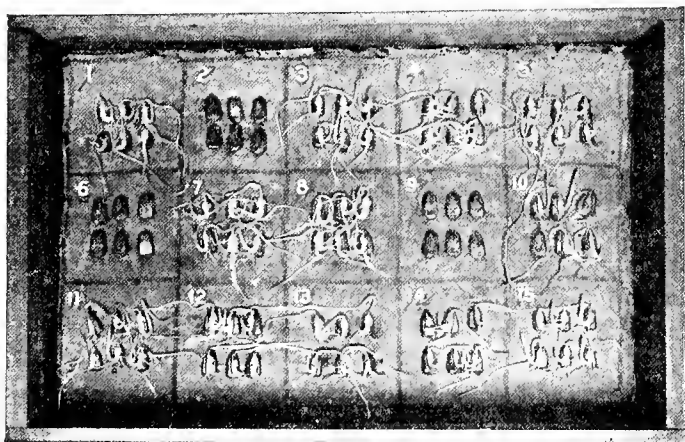 1 2 3 5
6 7 8 9 10
11 12 13 15